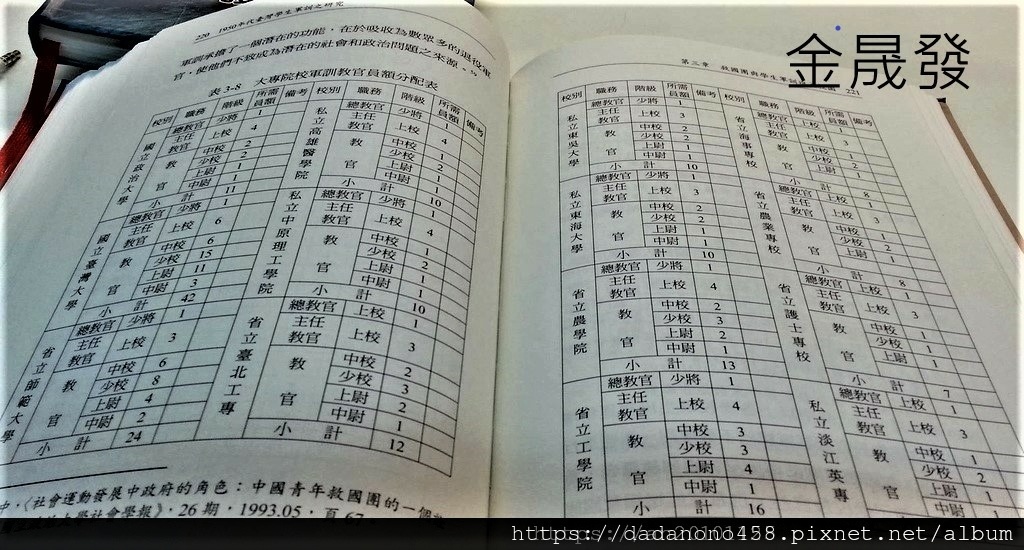 220 1950年代臺灣學生軍訓之研究
軍訓承擔了一個潛在的功能，在於吸收為數眾多的退役軍
官，使他們不致成為潛在的社會和政治問題之來源。
大專院校軍訓教官員額分配表
表 3-8
校別 職務 階級 所需員額 備考
國立政治大學 總教官 少將 1
主任教官 上校 4
教官 中校 2
少校 2
上尉 1
中尉 1
小計 11
國立臺灣大學 總教官 少將 1
主任教官 上校 6
教官 中校 6
少校 15
上尉 11
中尉 3
小計 42
省立師範大學 總教官 少將 1
主任教官 上校 3
教官 中校 6
少校 8
上尉 4
中尉 2
小計 24
校別 職務 階級 所需員額 備考
私立高雄醫學院 總教官 少將 1
主任教官 上校 4
教官 中校 1
少校 2
上尉 1
中尉 1
小計 10
私立中原理工學院 總教官 少將 1
主任教官 上校 4
教官 中校 1
少校 2
上尉 1
中尉 1
小計 10
省立臺北工專 總教官 上校 1
主任教官 上校 3
教官 中校 2
少校 3
上尉 2
中尉 1
小計 12
中，〈社會運動發展中政府的角色：中國青年救國團的一個
社會學報》，26期，1993.05，頁67。
第三章 救國團與學生軍訓 221
校別 職務 階級 所需員額 備考
私立東吳大學 總教官 少將 1
主任教官 上校 3
教官 中校 2
少校 2
上尉 1
中尉 1
小計 10
私立東海大學 總教官 少將 1
主任教官 上校 3
教官 中校 2
少校 2
上尉 1
中尉 1
小計 10
省立農學院 總教官 少將 1
主任教官 上校 4
教官 中校 2
少校 3
上尉 2
中尉 1
小計 13
省立工學院 總教官 少將 1
主任教官 上校 4
教官 中校 3
少校 3
上尉 4
中尉 1
小計 16
校別 職務 階級 所需員額 備考
省立海事專校 總教官 上校 1
主任教官 上校 3
教官 中校 1
少校 1
上尉 1
中尉 1
小計 8
省立農業專校 總教官 上校 1
主任教官 上校 3
教官 中校 1
少校 2
上尉 1
小計 8
省立護士專校 總教官 上校 1
主任教官 上校 3
教官 中校 1
少校 1
上尉 1
小計 7
私立淡江英專 總教官 上校 1
主任教官 上校 3
教官 中校 1
少校 2
上尉
中尉 1
金晟發
https://dadanono1458.pixnet.net/album